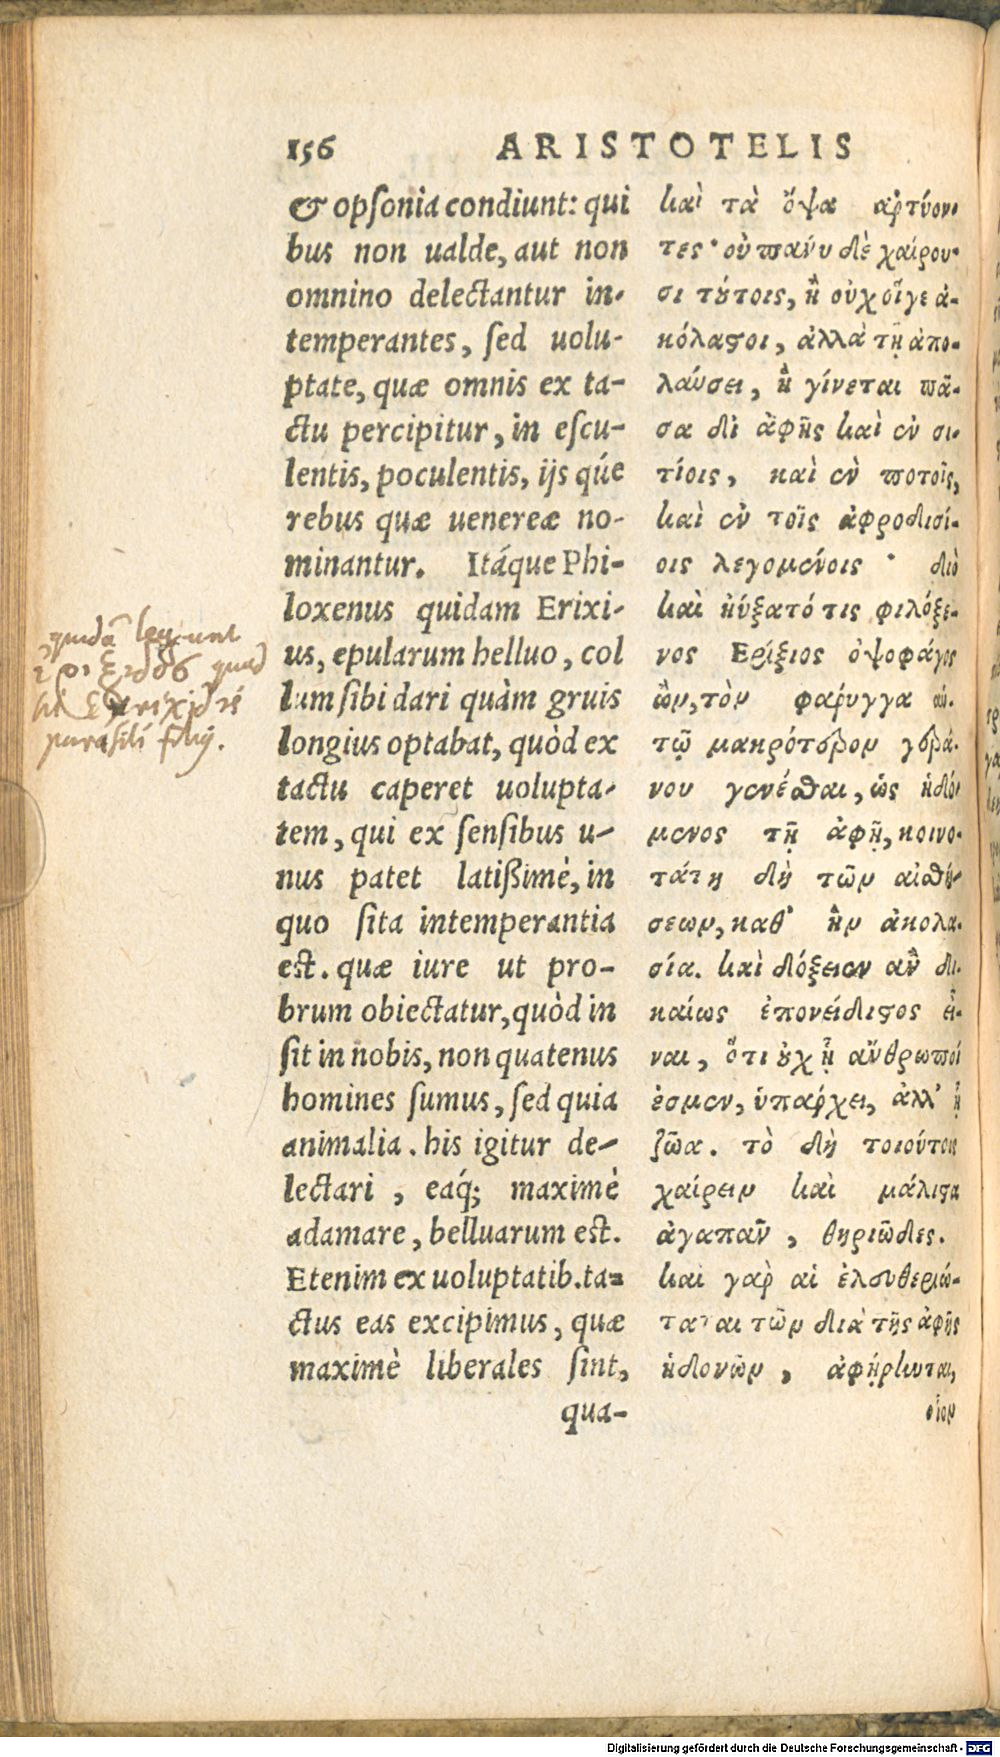 156 ARISTOTELIS
& opſonia condiunt: qui
bus non ualde, aut non
omnino delectantur in-
temperantes, ſed uolu-
ptate, quæ omnis ex ta-
ctu percipitur, in eſcu-
lentis, poculentis, ijs qúe
rebus quæ uenereæ no-
minantur. Itáque Phi-
loxenus quidam Erixi-
us, epularum helluo, col
lum ſibi dari quàm gruis
longius optabat, quòd ex
tactu caperet uolupta-
tem, qui ex ſenſibus u-
nus patet latißimè, in
quo ſita intemperantia
est. quæ iure ut pro-
brum obiectatur, quòd in
ſit in nobis, non quatenus
homines ſumus, ſed quia
animalia. his igitur de-
lectari, eaq́; maximè
adamare, belluarum est.
Etenim ex uoluptatib. ta-
ctus eas excipimus, quæ
maximè liberales ſint,
qua-
καὶ τὰ ὄψα ἀρτύον-
τες· οὐ πάνυ δὲ χαίρου-
σι τούτοις, ἢ οὐχ οἵγε ἀ-
κόλαστοι, ἀλλὰ τῇ ἀπο-
λαύσει, ἣ γίνεται πᾶ-
σα δι ἁφῆς καὶ ἐν σι-
τίοις, καὶ ἐν ποτοῖς,
καὶ ἐν τοῖς ἀφροδισί-
οις λεγομένοις· διὸ
καὶ ηὔξατό τις φιλόξε-
νος Ερίξιος ὀψοφάγος
ὢν, τὸν φάρυγγα αὑ-
τῷ μακρότερον γερά-
νου γενέσθαι, ὡς ἡδό-
μενος τῇ ἁφῇ, κοινο-
τάτη δὴ τῶν αἰσθή-
σεων, καθ' ἣν ἀκολα-
σία. καὶ δόξειεν ἂν δι-
καίως ἐπονείδιστος εἶ-
ναι, ὅτι οὐχ ᾗ ἄνθρωποί
ἐσμεν, ὑπάρχει, ἀλλ' ᾗ
ζῶα. τὸ δὴ τοιούτοις
χαίρειν καὶ μάλιστα
ἀγαπᾶν, θηριῶδες.
καὶ γὰρ αἱ ἐλευθεριώ-
ταται τῶν διὰ τῆς ἁφῆς
ἡδονῶν, ἀφῄρηνται,
οἷον
quidã legunt
parasiti filij.
Digitalisierung gefördert durch die Deutsche Forschungsgemeinschaft - DFG